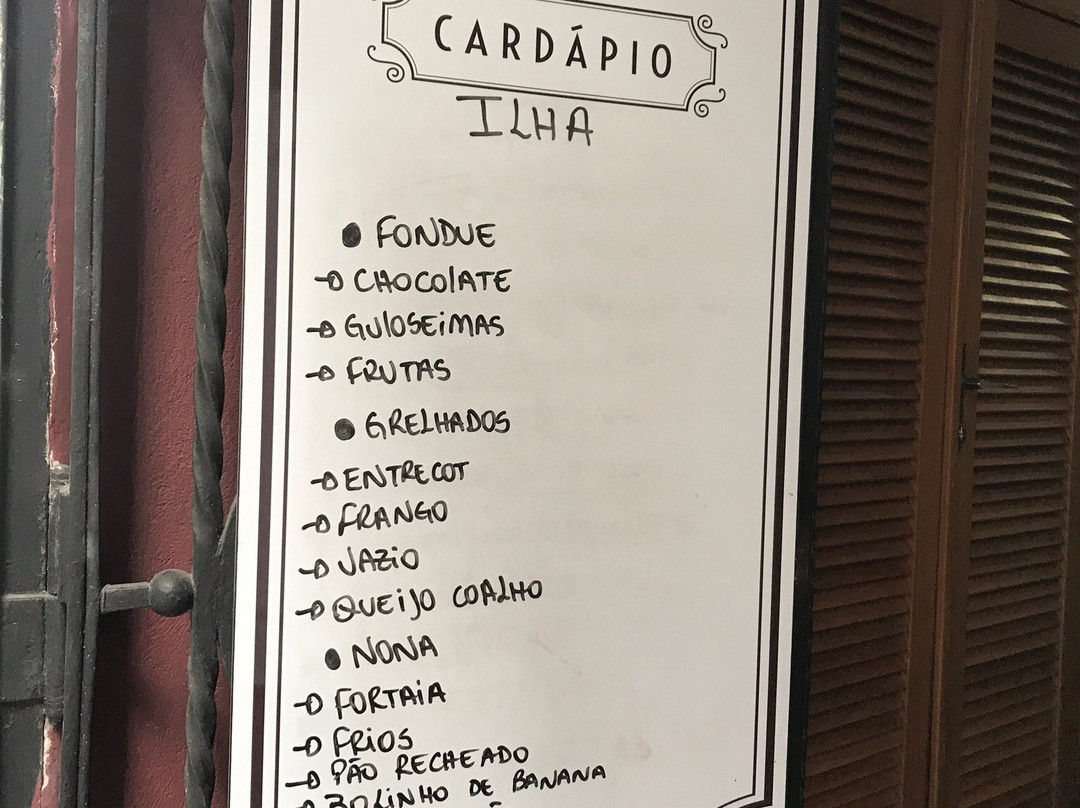 CARDÁPIO
ILHA
FONDUE
CHOCOLATE
GULOSEIMAS
FRUTAS
GRELHADOS
ENTRECOT
FRANGO
VAZIO
QUEIJO COALHO
NONA
FORTAIA
FRIOS
PÃO RECHEADO
BOLINHO DE BANANA